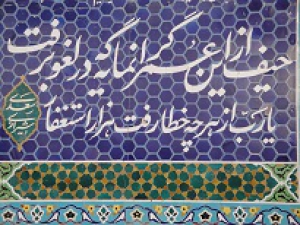 حیف از این عمر گرانمایه که در لغو برفت
یارب از هر چه خطا رفت هزار استغفار